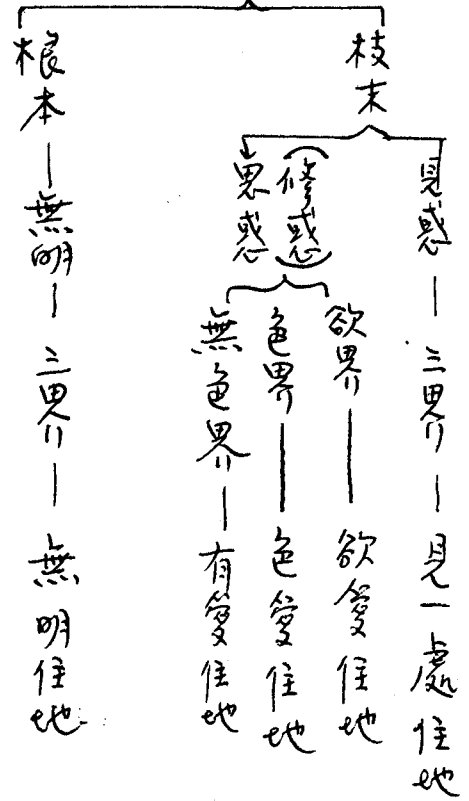 枝末
見惑—三界—見一處住地
(修惑)
思惑
欲界—欲愛住地
色界—色愛住地
無色界—有愛住地
根本—無明—三界—無明住地